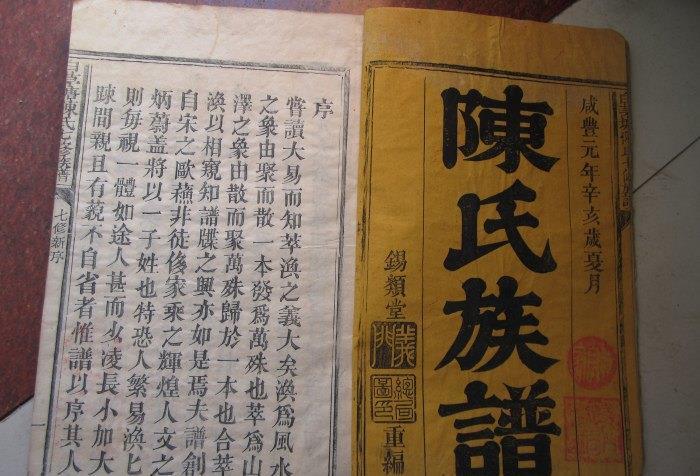 咸豐元年辛亥歲夏月
陳氏族譜
錫類堂
重編
序
嘗讀大易而知萃渙之義大矣渙爲風水
之象由聚而散一本發爲萬殊也萃爲山
澤之象由散而聚萬殊歸於一本也合萃
渙以相窺知譜牒之興亦如是焉夫譜創
自宋之歐蘇非徒侈家乘之輝煌人文之
炳蔚蓋將以一子姓也特恐人繁易渙匕
則每視一體如途人甚而少凌長小加大
踈間親且有藐不自省者惟譜以序其人
七修新序